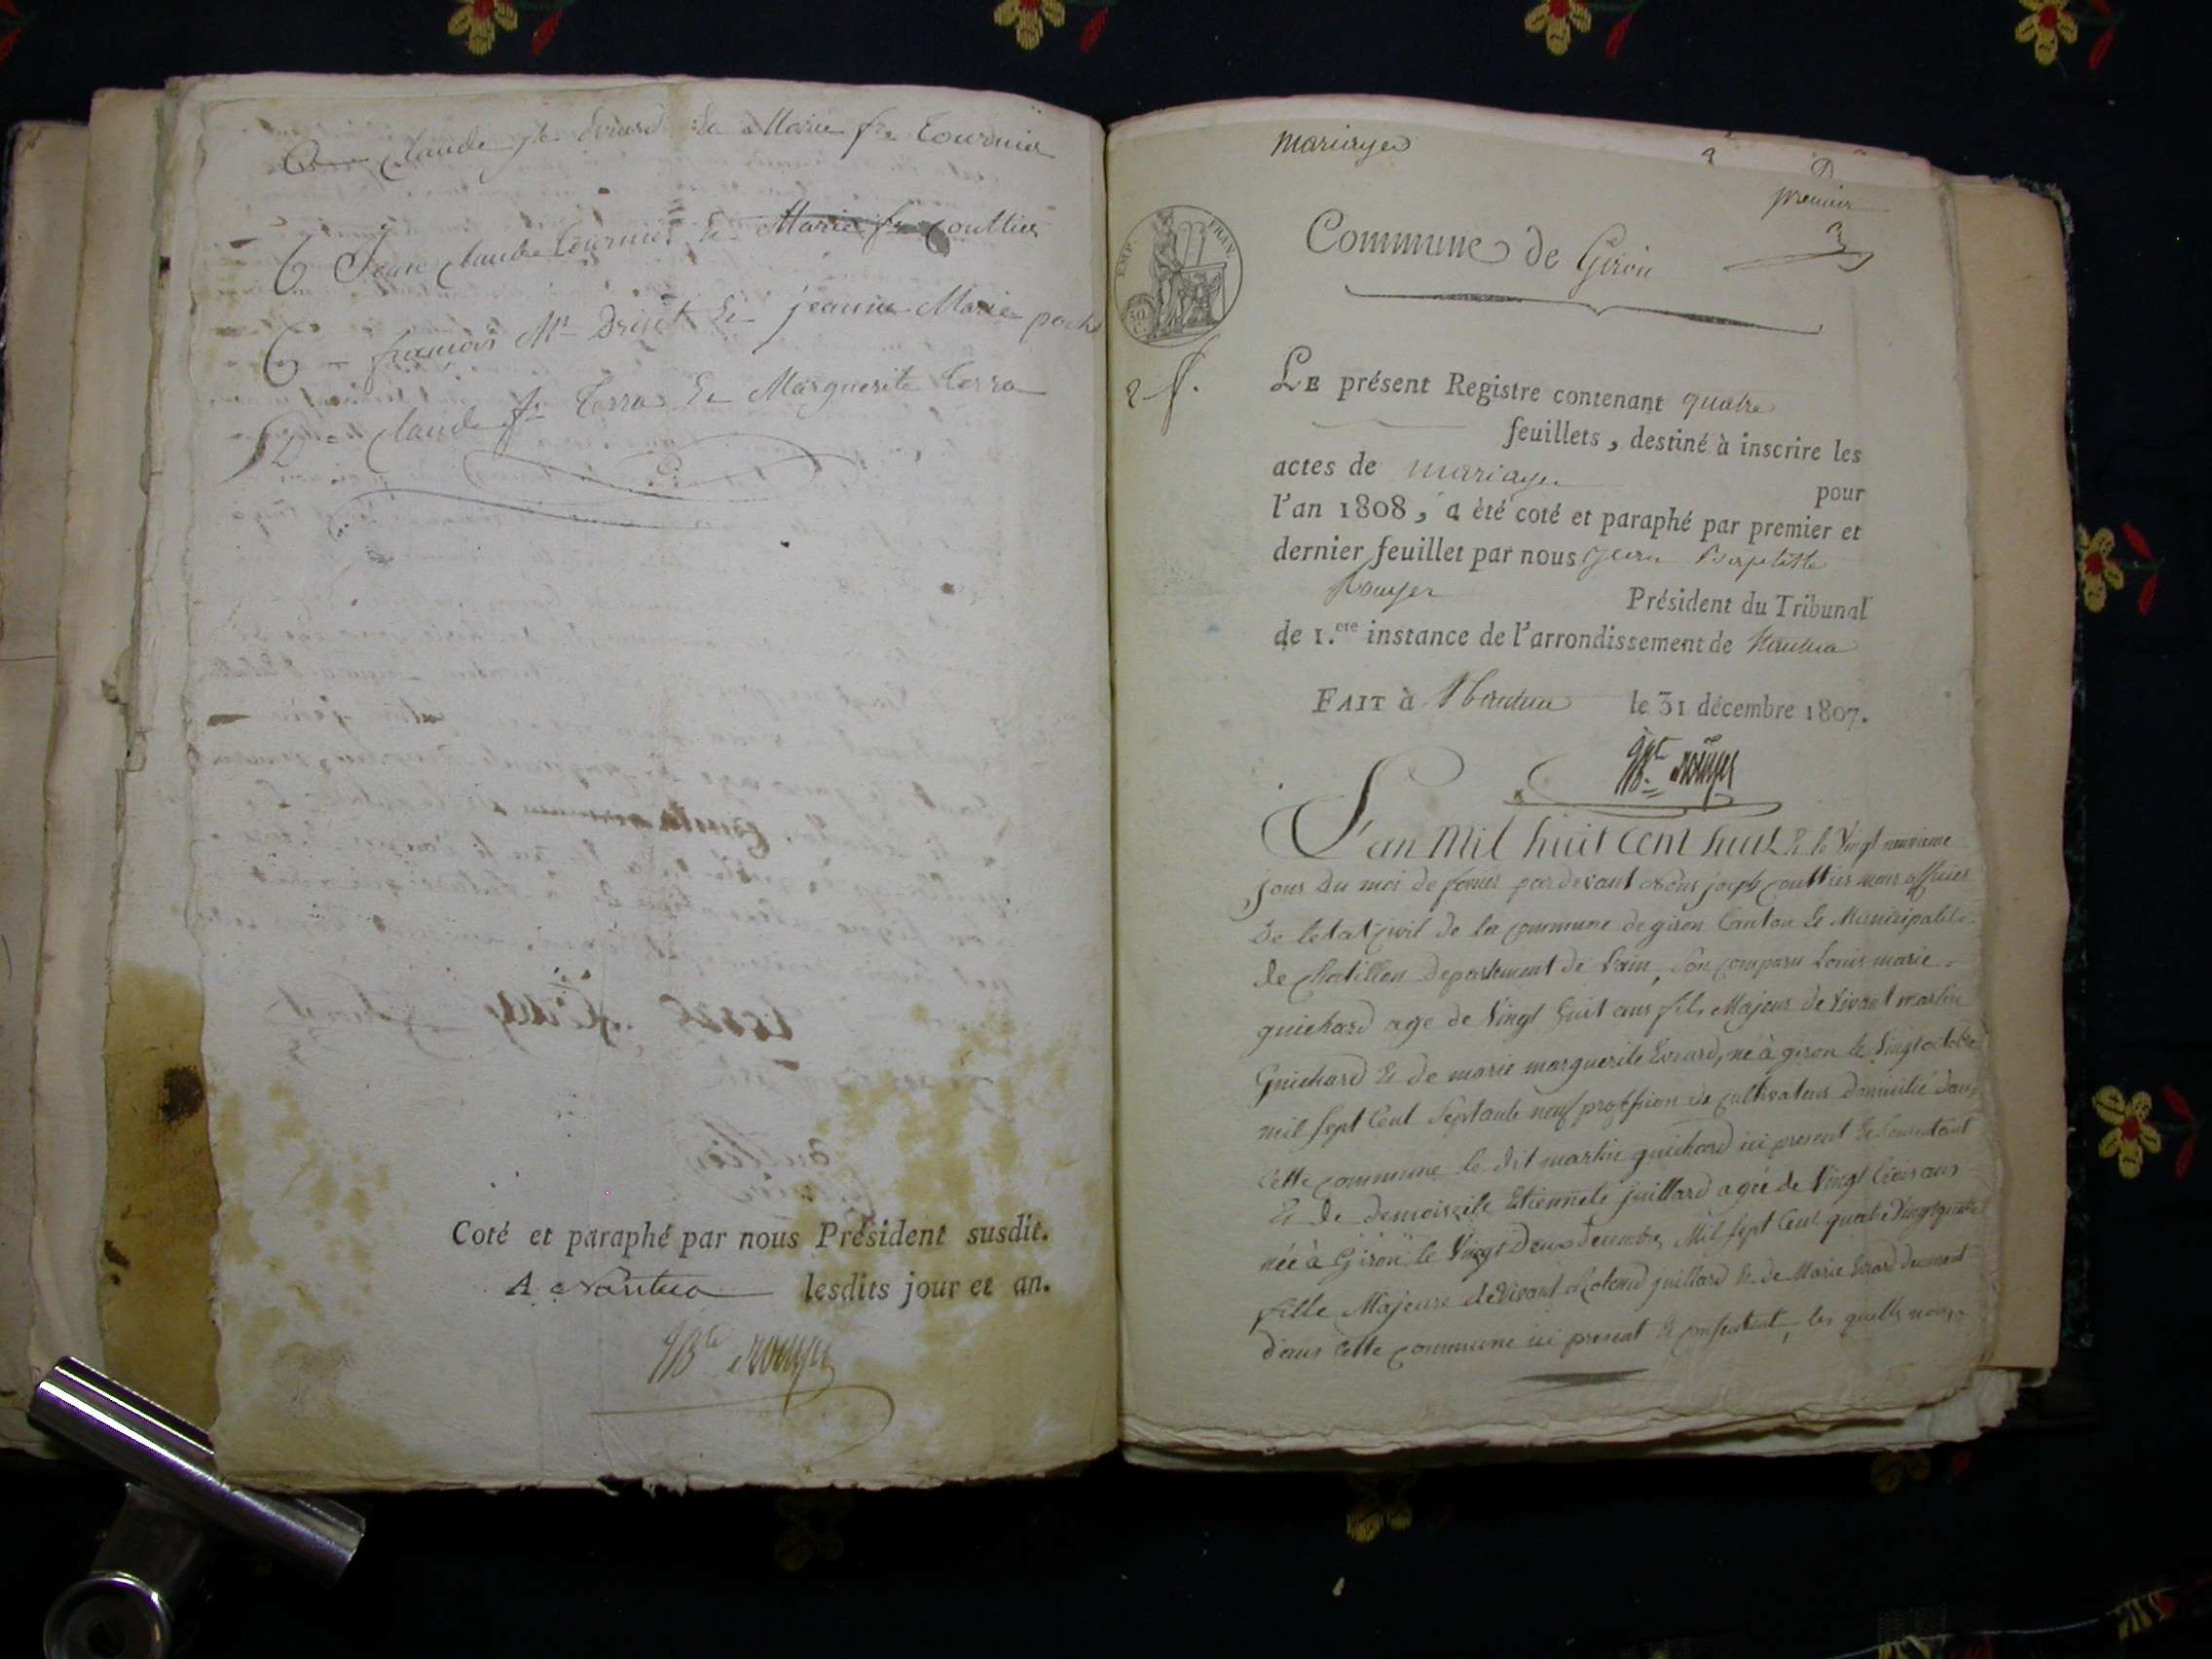 Claude jh Evrard & Marie fse Tournier
Jean Claude Tournier & Marie fse Couttier
françois Mie Driset & jeanne Marie
Claude fs Terra & Marguerite Terra
Coté et paraphé par nous Président susdit.
A Nantua lesdits jour et an.
JBte Rouyer
mariages
premier
Commune de Giron
EMP. FRAN.
2 f.
LE présent Registre contenant quatre
feuillets, destiné à inscrire les
actes de mariages pour
l'an 1808, a été coté et paraphé par premier et
dernier feuillet par nous Jean Baptiste
Rouyer Président du Tribunal
de 1.ere instance de l'arrondissement de Nantua
FAIT à Nantua le 31 décembre 1807.
JBte Rouyer
L'an Mil huit cent huit & le Vingt neuvieme
jour du moi de fevrier pardevant Nous joseph Couttier maire officier
de letat Civil de la commune de giron Canton & Municipalité
de Chatillon departement de Lain, son comparu Louis marie
guichard age de Vingt huit ans fils Majeur de Vivant martin
Guichard & de marie marguerite Evrard, né à giron le Vingt octobre
mil sept Cent Septante neuf proffesion de cultivateur domicilié dans
cette commune le dit martin guichard ici present & consentant
& de demoiselle Etiennete juillard agée de Vingt trois ans
née à Giron le Vingt Deux decembre Mil sept Cent quatre Vingt quatre
fille Majeure de Vivant Rolend juillard & de Marie Evrard demeurant
dans cette commune ici present & consentant, les quelles nous